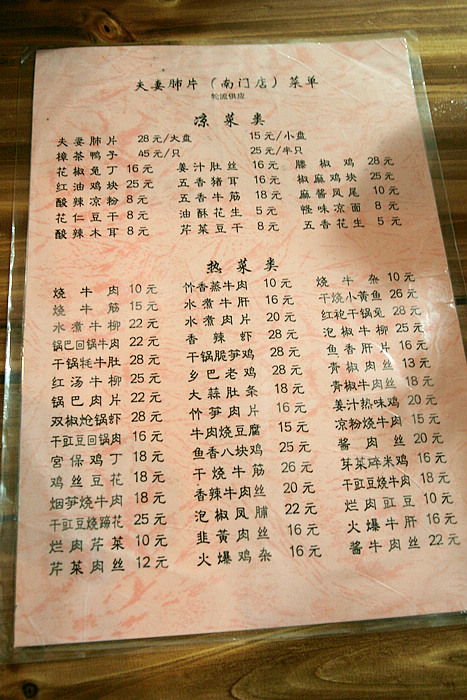 夫妻肺片（南门店）菜单
轮流供应
凉菜类
夫妻肺片 28元/大盘 15元/小盘
樟茶鸭子 45元/只 25元/半只
花椒兔丁 16元 姜汁肚丝 16元 藤椒鸡 28元
红油鸡块 25元 五香猪耳 16元 椒麻鸡块 25元
酸辣凉粉 8元 五香牛筋 18元 麻酱凤尾 10元
花仁豆干 8元 油酥花生 5元 怪味凉面 8元
酸辣木耳 8元 芹菜豆干 8元 五香花生 5元
热菜类
烧牛肉 10元 竹香蒸牛肉 10元 烧牛杂 10元
烧牛筋 15元 水煮牛肝 16元 干烧小黄鱼 26元
水煮牛柳 22元 水煮肉片 20元 红袍干锅兔 28元
锅巴回锅牛肉 22元 香辣虾 28元 泡椒牛柳 25元
干锅牦牛肚 28元 干锅脆笋鸡 28元 鱼香肝片 16元
红汤牛柳 25元 乡巴老鸡 28元 青椒肉丝 13元
锅巴肉片 22元 大蒜肚条 18元 青椒牛肉丝 18元
双椒炝锅虾 28元 竹笋肉片 16元 姜汁热味鸡 20元
干豇豆回锅肉 16元 牛肉烧豆腐 15元 凉粉烧牛肉 15元
宫保鸡丁 18元 鱼香八块鸡 25元 酱肉丝 20元
鸡丝豆花 18元 干烧牛筋 26元 芽菜碎米鸡 16元
烟笋烧牛肉 18元 香辣牛肉丝 20元 干豇豆烧牛肉 18元
干豇豆烧蹄花 25元 泡椒凤脯 22元 烂肉豇豆 10元
烂肉芹菜 10元 韭黄肉丝 16元 火爆牛肝 16元
芹菜肉丝 12元 火爆鸡杂 16元 酱牛肉丝 22元